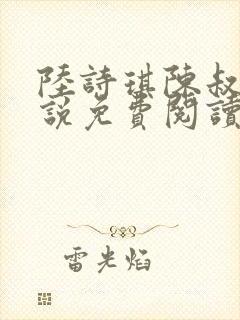 陸詩琪陳叔
說免費閱讀
雷光焰